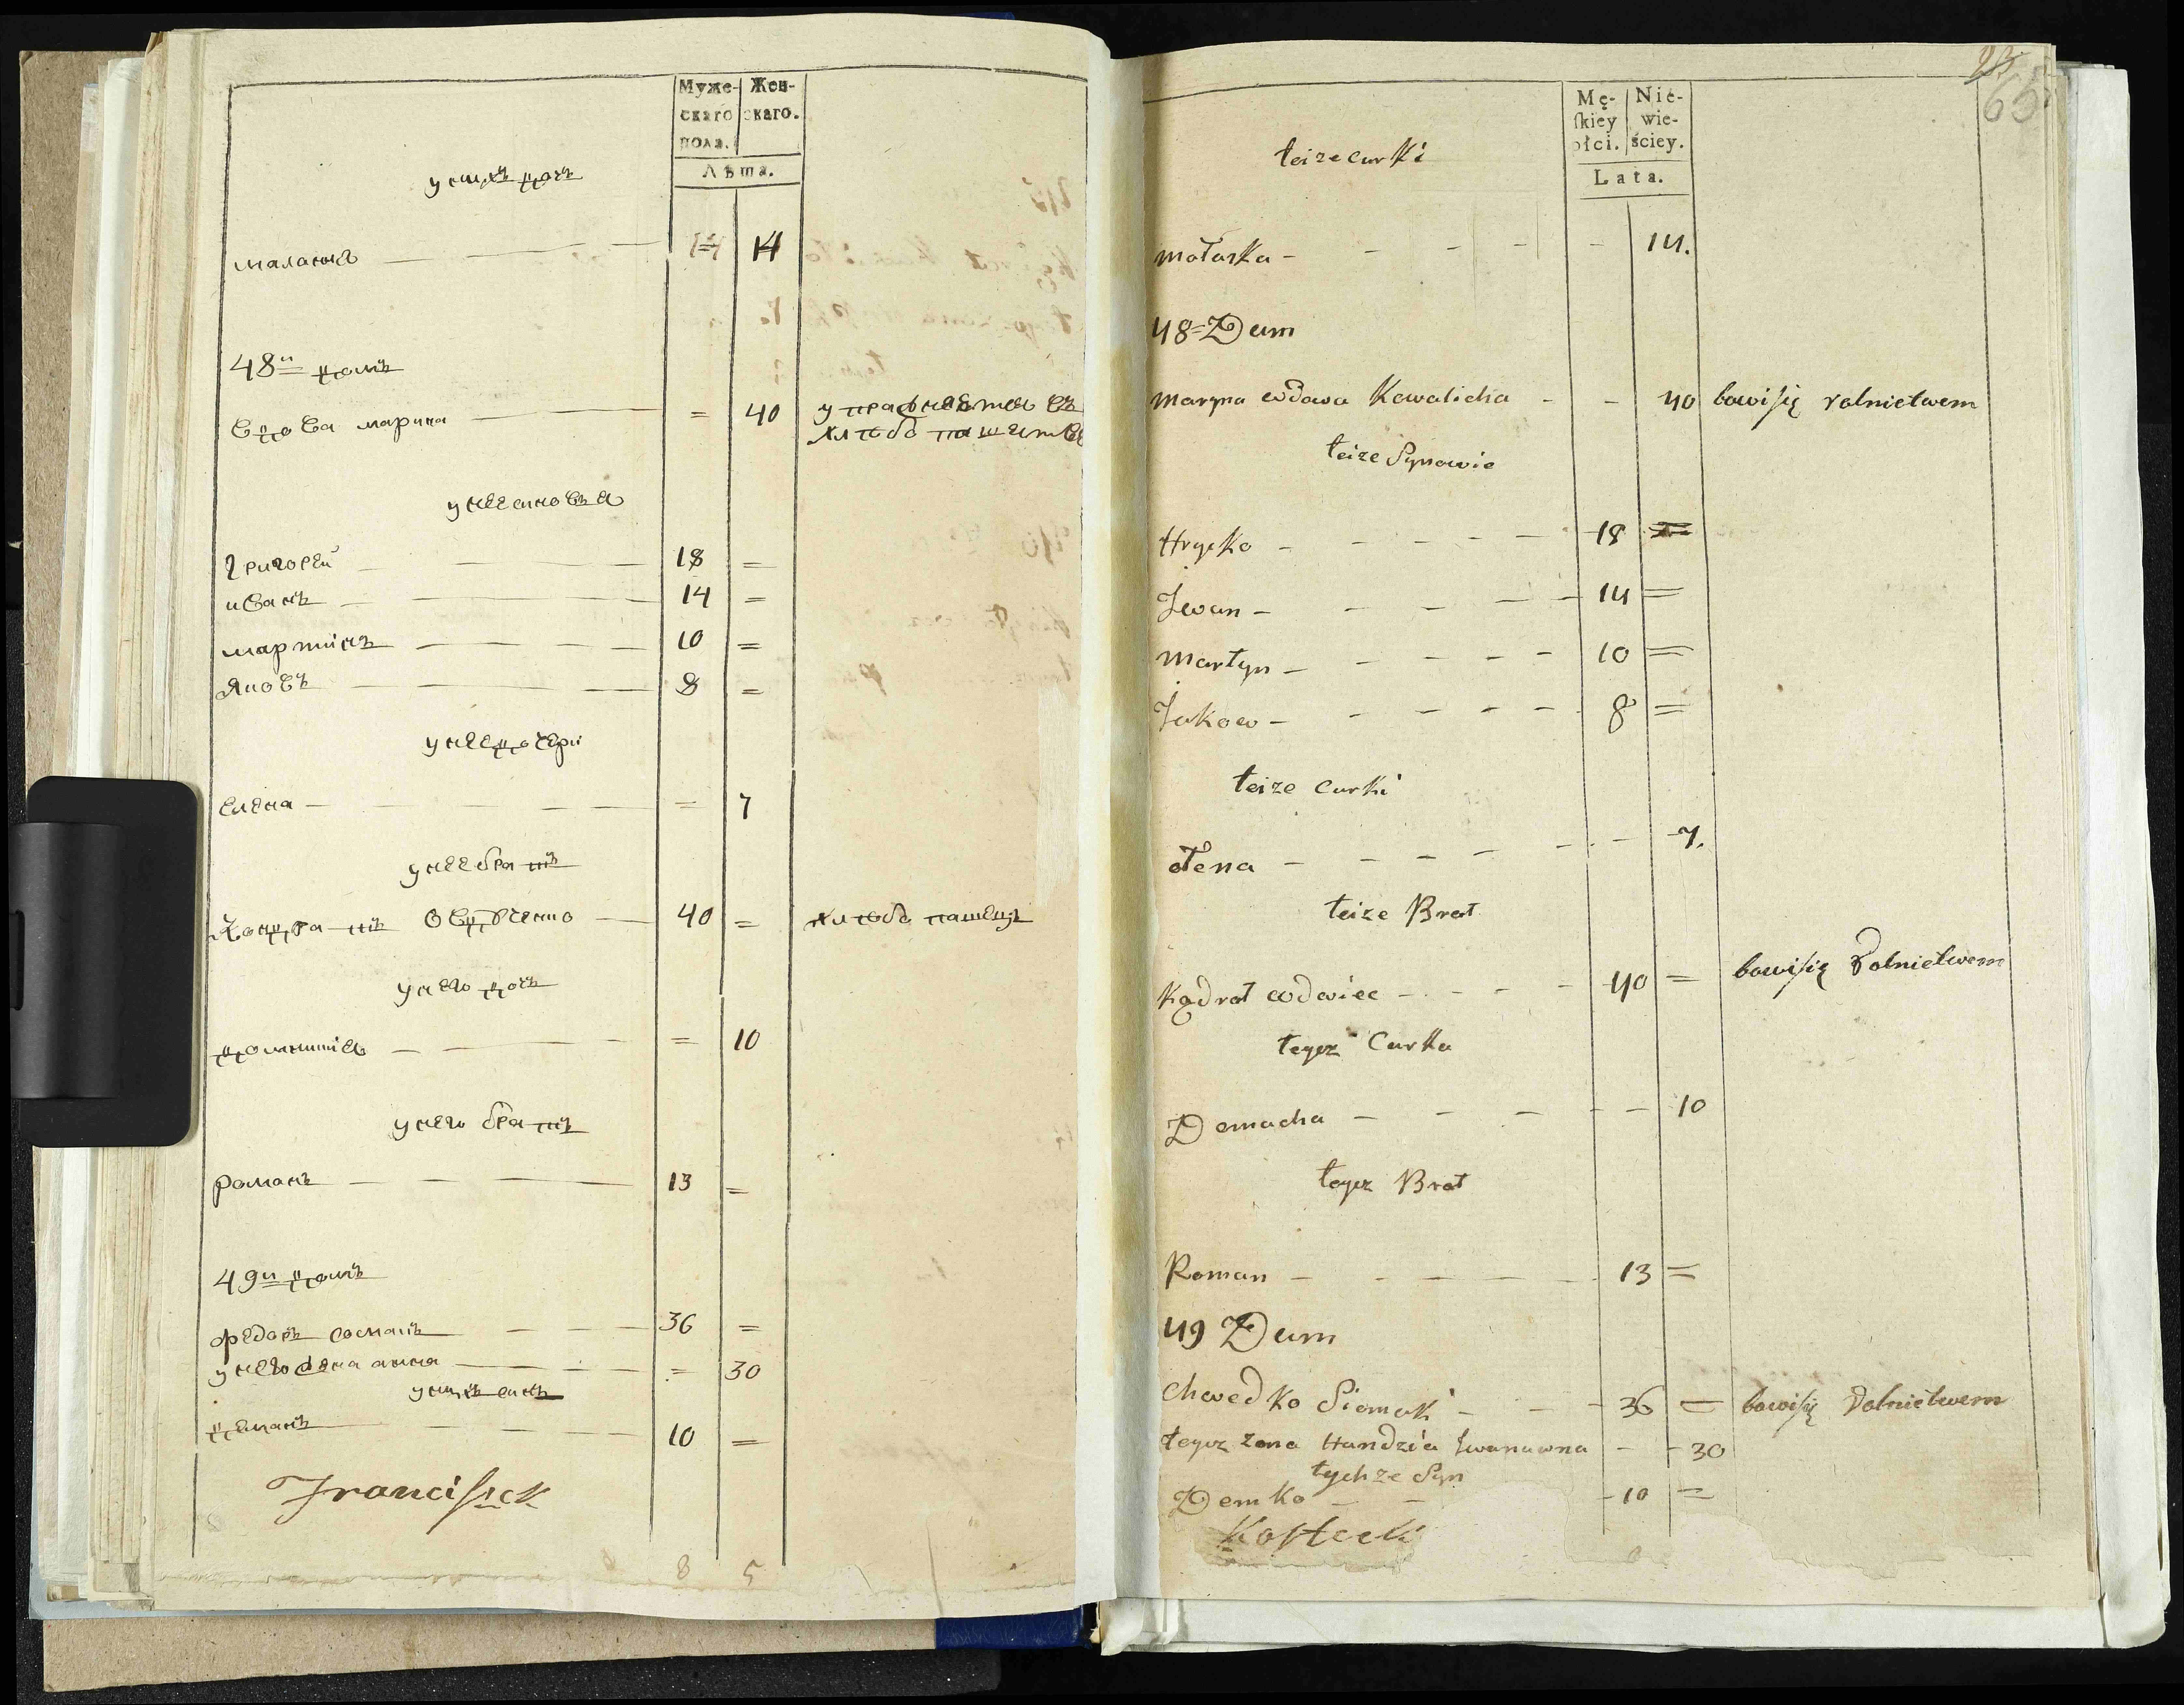 Муже-
скаго
пола.
Жен-
скаго.
Лѣта.
у нихъ дочь
маланья 14 14
48й домъ
вдова марина = 40 упражнѣется въ
хлѣбопашествѣ
у нее сыновья
григорей 18 =
иванъ 14 =
мартинъ 10 =
яковъ 8 =
у нее дочери
елена = 7
у нее братъ
Кондратъ 40 = хлѣбопашецъ
у него дочь
= 10
у него братъ
романъ 13 =
49й домъ
федоръ 36 =
у него жена анна = 30
у нихъ сынъ
демянъ 10 =
Franciszek
8 5
65
Mę-
skiey
płci.
Nie-
wie-
ściey.
Lata.
teize curki
małaszka - 14.
48=Dum
maryna wdowa Kowalicha - 40 bawi się rolnictwem
teize Synowie
Hrycko 18 =
Iwan 14 =
martyn 10 =
Jakow 8 =
teize curki
ołena - 7.
teize Brat
Kądrat wdowiec 40 = bawi się Rolnictwem
tegoz Curka
Domacha - 10
tegoz Brat
Roman 13 =
49 Dum
Chwedko Siemak 36 = bawi się Rolnictwem
tegoz zona Handzia Iwanowna - 30
tychze Syn
Demko - 10 =
Kostecki